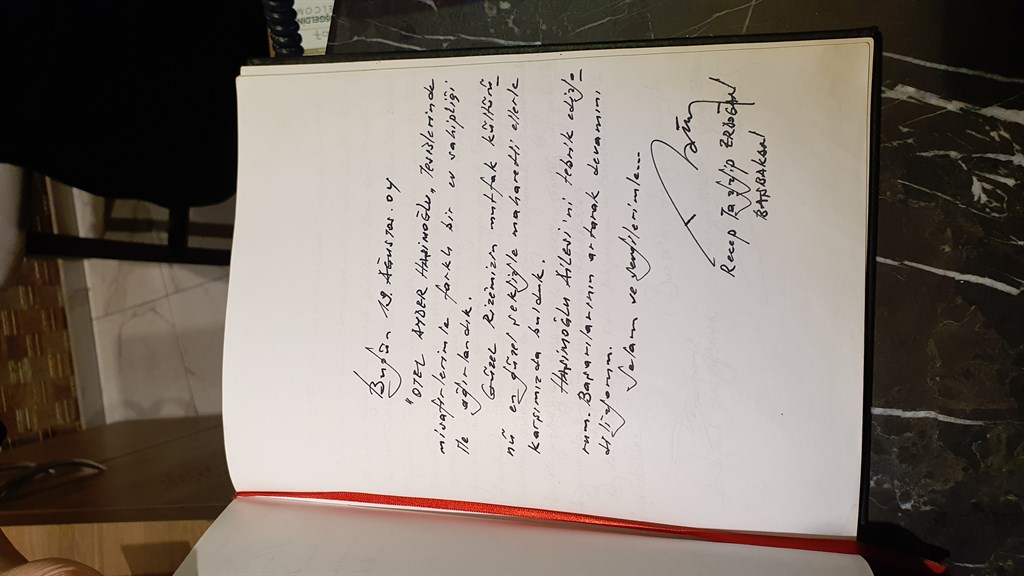 Bugün 19 Ağustos. 04
"OTEL AYDER HAŞİMOĞLU, Tesislerinde
misafirlerimle farklı bir ev sahipliği
ile ağırlandık.
Güzel Rizemizin mutfak kültürü-
nü en güzel şekliyle maharetli ellerle
karşımızda bulduk.
HAŞİMOĞLU AİLESİ'ni tebrik ediyo-
rum. Başarılarının artarak devamını
diliyorum.
Selam ve sevgilerimle...
Recep Tayyip ERDOĞAN
BAŞBAKAN